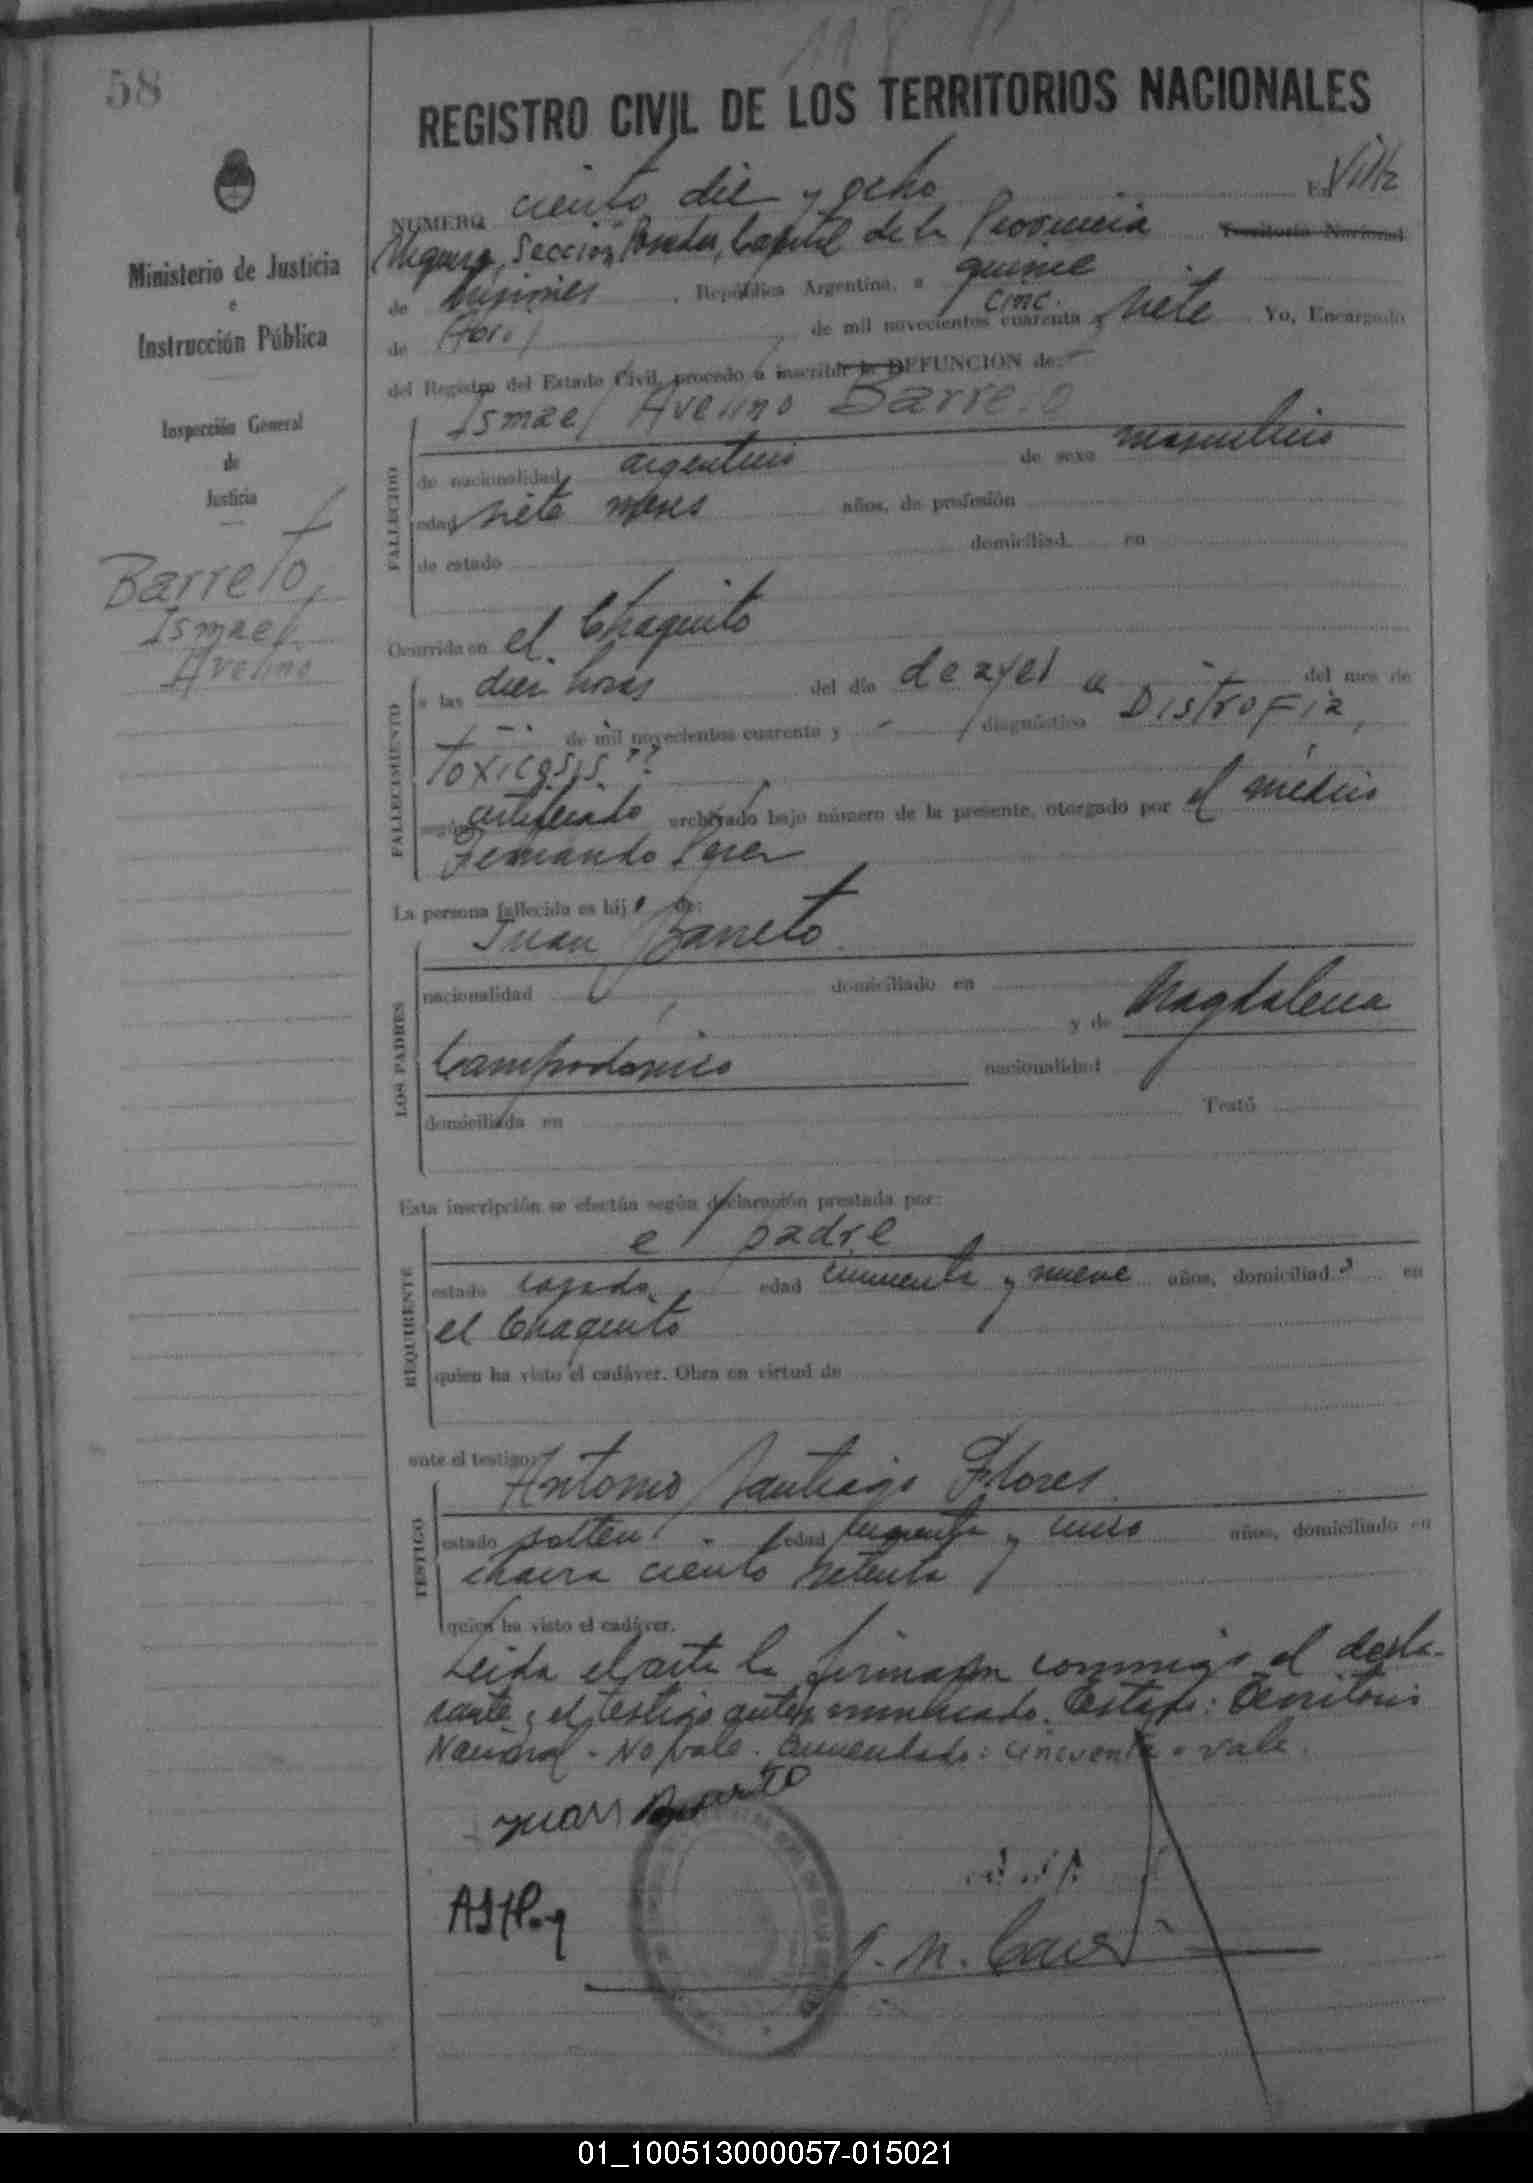 58
118
REGISTRO CIVIL DE LOS TERRITORIOS NACIONALES
Ministerio de Justicia
e
Instrucción Pública
Inspección General
de
Justicia
Barreto,
Ismael
Avelino
NUMERO ciento diez y ocho En Villa
Sección Posadas, Capital de la Provincia Territorio Nacional
de Misiones, República Argentina, a quince
de Abril de mil novecientos cinc. cuarenta y siete Yo, Encargado
del Registro del Estado Civil, procedo a inscribir la DEFUNCION de:
Ismael Avelino Barreto
FALLECIDO
de nacionalidad argentino de sexo masculino
edad siete meses años, de profesión
de estado domiciliad en
Ocurrida en el Chaquito
FALLECIMIENTO
a las diez horas del día de ayer del mes de
de mil novecientos cuarenta y diagnóstico Distrofia,
Toxicosis
según certificado archivado bajo número de la presente, otorgado por el médico
Fernando
La persona fallecida es hijo de:
Juan Barreto
LOS PADRES
nacionalidad domiciliado en
y de Magdalena
Campodonico nacionalidad
domiciliada en Testó
Esta inscripción se efectúa según declaración prestada por:
el padre
REQUIRENTE
estado casado edad cincuenta y nueve años, domiciliado en
el Chaquito
quien ha visto el cadáver. Obra en virtud de
ante el testigo:
Antonio Santiago Flores
TESTIGO
estado soltero edad y cinco años, domiciliado en
chacra ciento setenta
quien ha visto el cadáver.
Leida el acta la firman conmigo el decla-
rante y el testigo antes enunciado. Testado: Territorio
Nacional - No vale. Enmendado: cincuenta - vale.
Juan Barreto
01_100513000057-015021